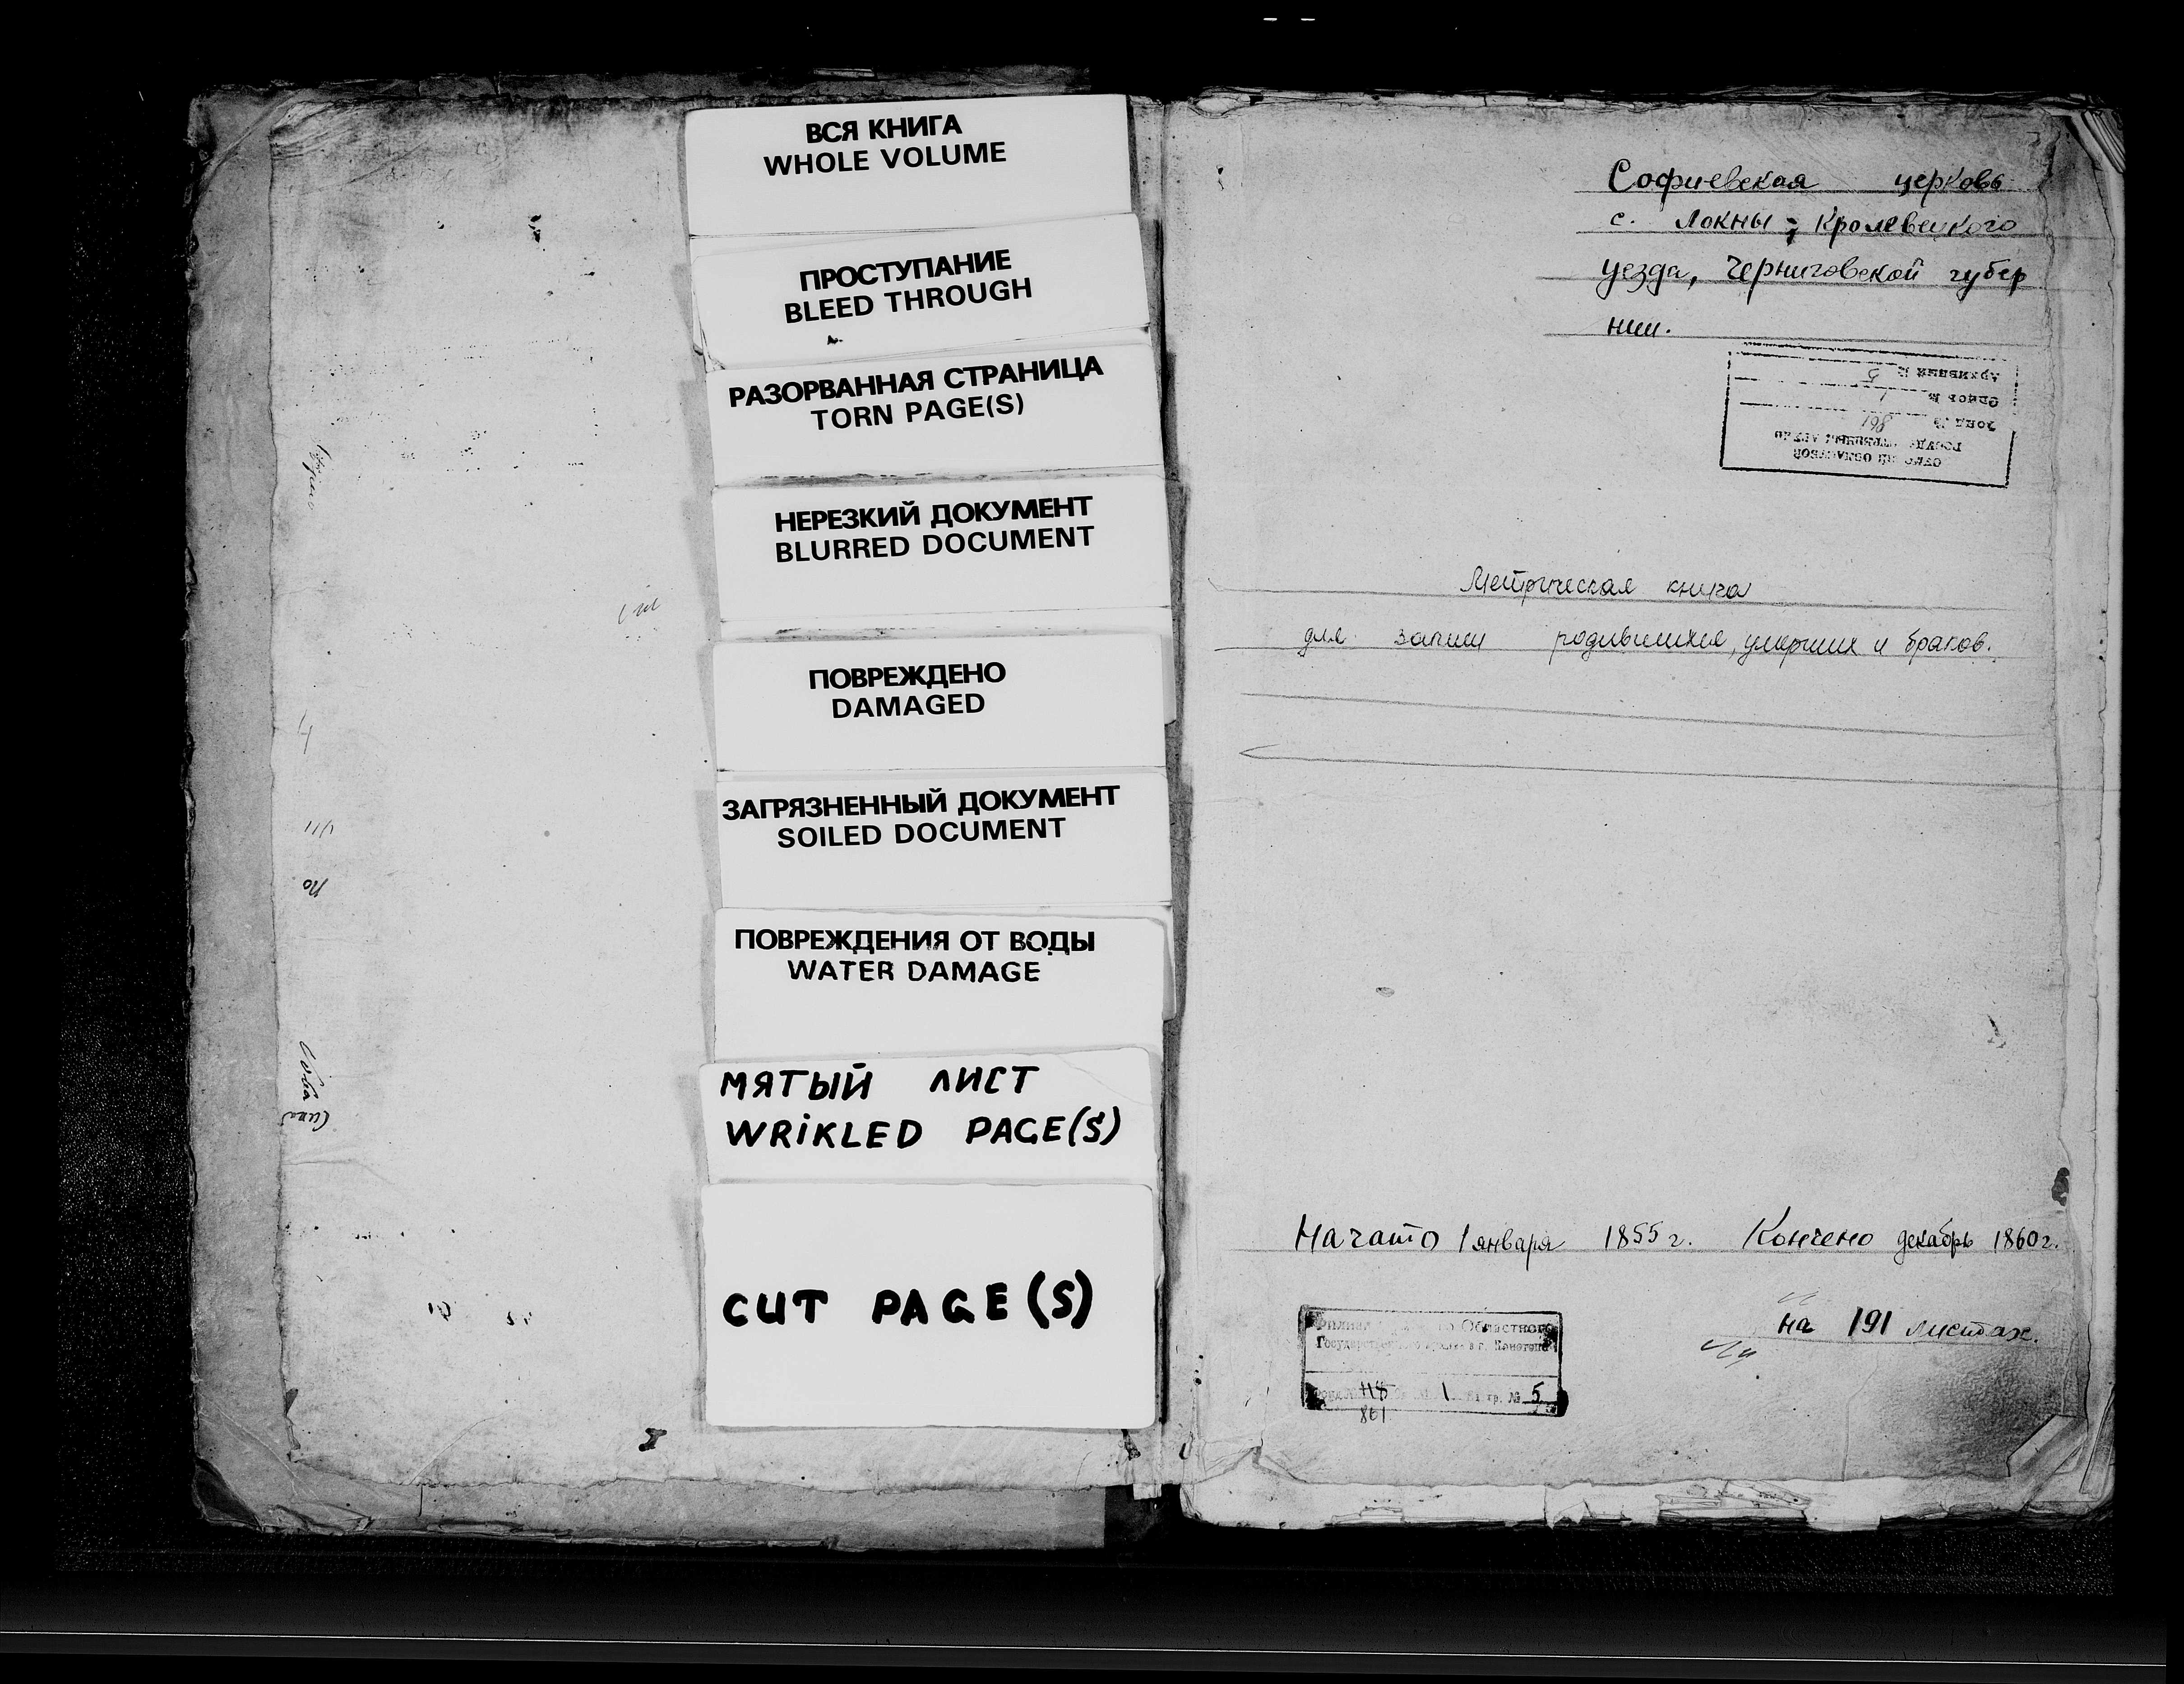 ВСЯ КНИГА
WHOLE VOLUME
ПРОСТУПАНИЕ
BLEED THROUGH
РАЗОРВАННАЯ СТРАНИЦА
TORN PAGE(S)
НЕРЕЗКИЙ ДОКУМЕНТ
BLURRED DOCUMENT
ПОВРЕЖДЕНО
DAMAGED
ЗАГРЯЗНЕННЫЙ ДОКУМЕНТ
SOILED DOCUMENT
ПОВРЕЖДЕНИЯ ОТ ВОДЫ
WATER DAMAGE
МЯТЫЙ ЛИСТ
WRiKLED PAGE(S)
CUT PAGE(S)
Софиевская церковь
с. Локны, Кролевецкого
уезда, Черниговской губер
нии.
Архивный № 5
Опись № 1
Фонд № 861
Метрическая книга
для записи родившихся, умерших и браков.
Начато 1 января 1855 г. Кончено декабрь 1860 г.
на 191 листах.
Областного
Государственного
118 1 № 5
861